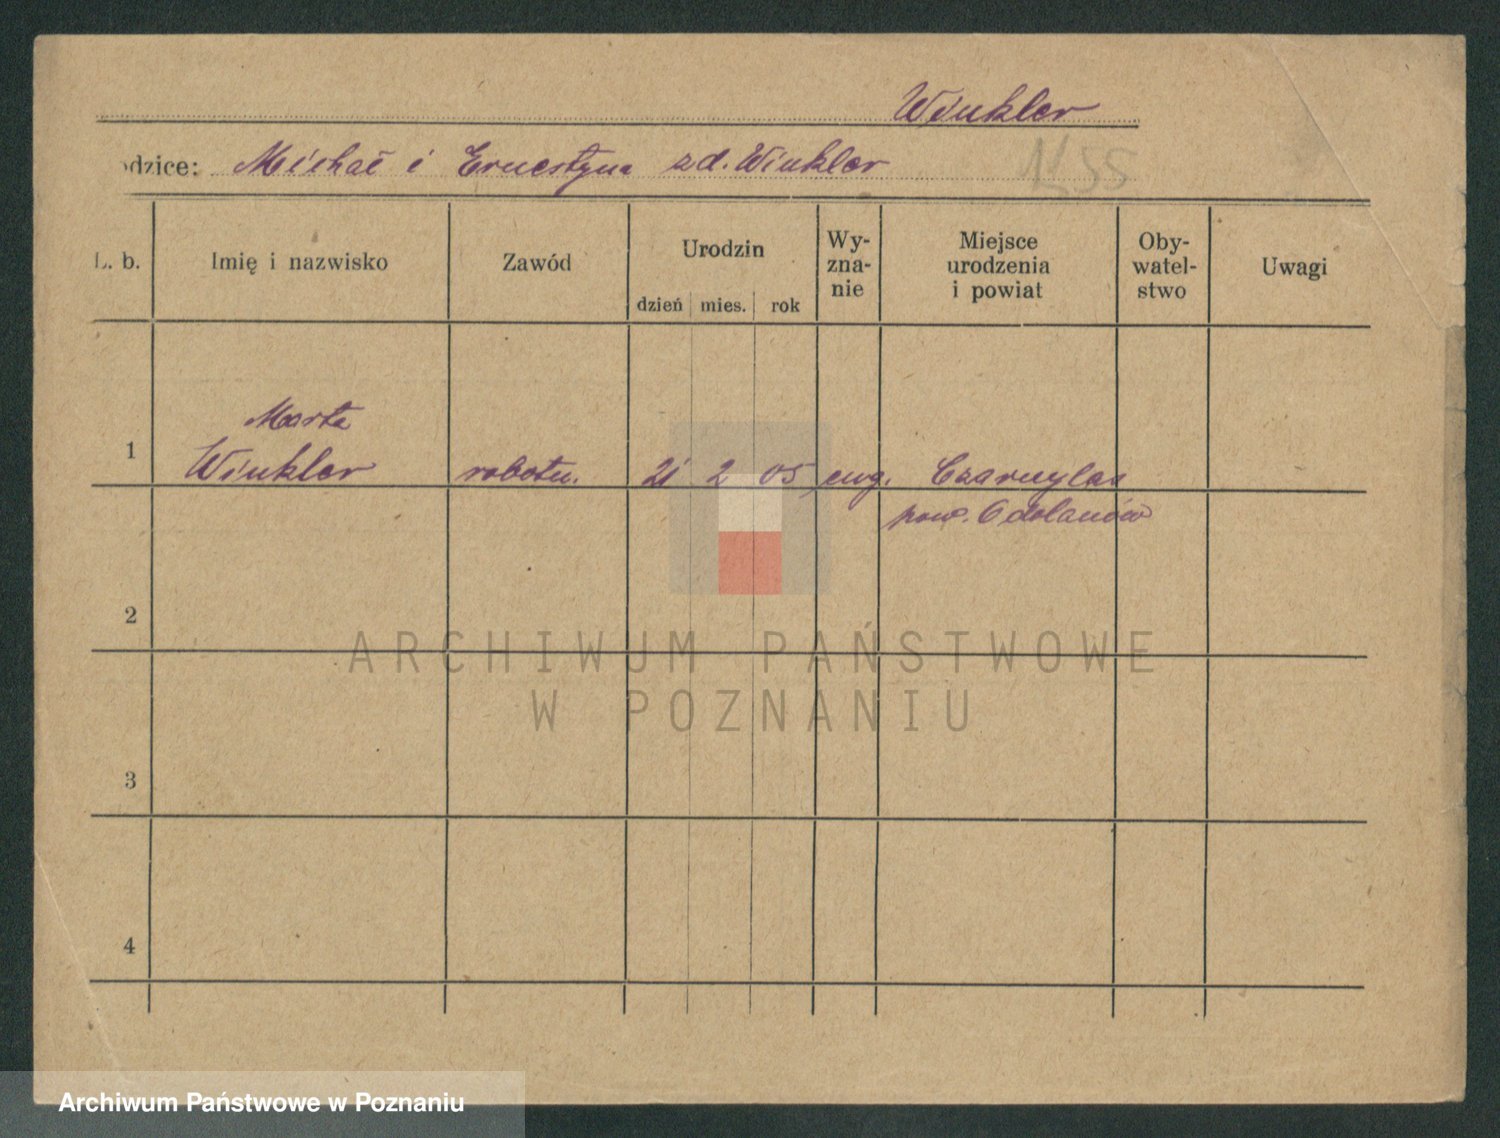 Winkler
odzice: Michał i Ernestyna zd. Winkler
1155
L. b.
Imię i nazwisko
Zawód
Urodzin
dzień mies. rok
Wy-
zna-
nie
Miejsce
urodzenia
i powiat
Oby-
watel-
stwo
Uwagi
Marta
1 Winkler robotn. 21 2 05 ewg. Czarnylas
pow. Odolanów
2
3
4
ARCHIWUM PAŃSTWOWE
W POZNANIU
Archiwum Państwowe w Poznaniu